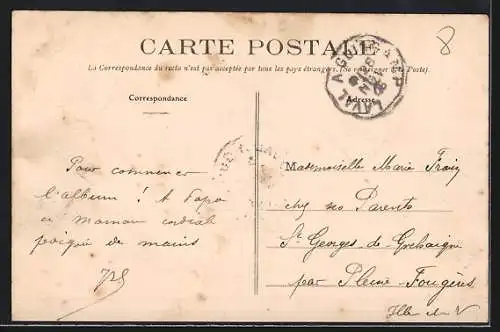 8
CARTE POSTALE
La Correspondance du recto n'est pas acceptée par tous les pays étrangers. (Se renseigner à la Poste).
Correspondance
Adresse
LAVAL A
Pour commencer
l'album ! A Papa
et Maman cordial
poignée de mains
Mademoiselle Marie
chez ses Parents
St Georges de Grehaigne
par Pleine-Fougères
Ille et V